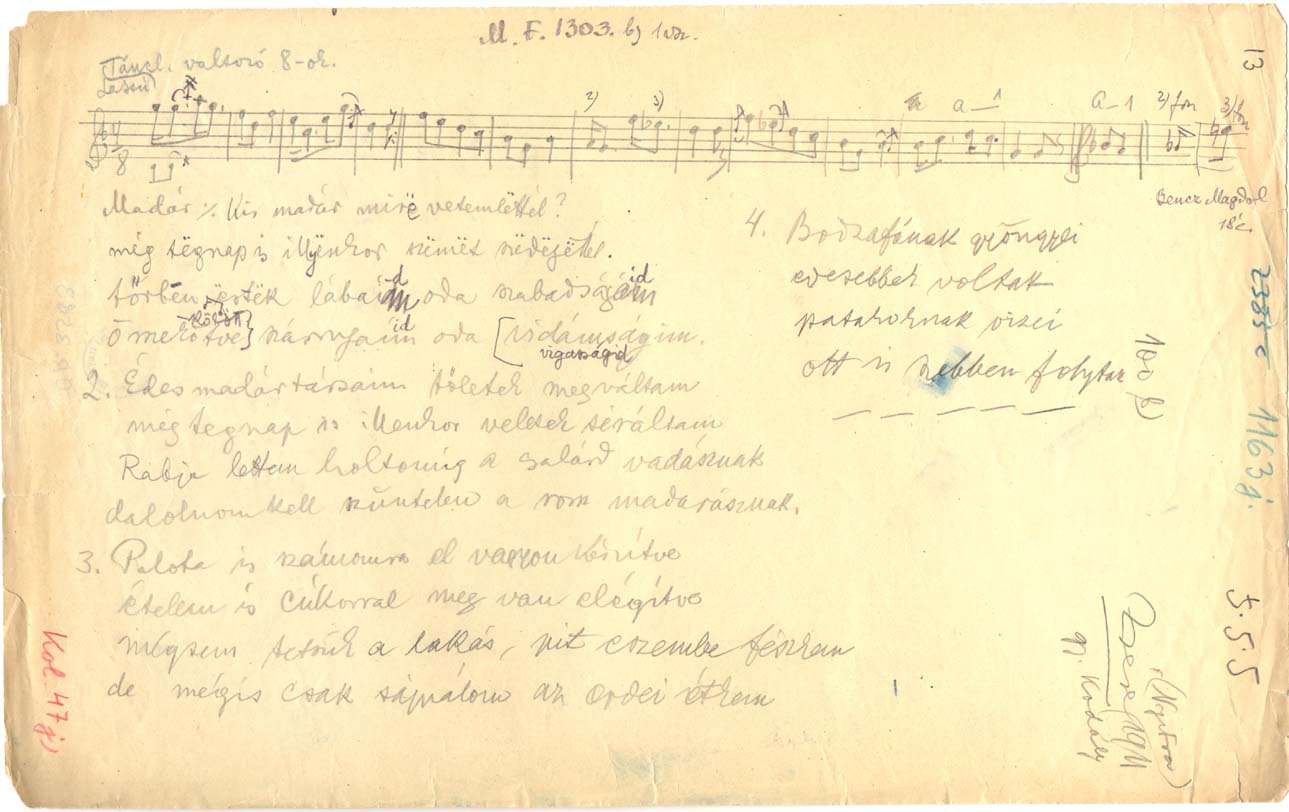 M. F. 1303. b) 1 vsz.
Táncl. valtozó 8-ok.
Lassú
4
8
2)
3)
a – 1
a – 1
2) fon
3) fon
13
Madár ·/. Kis madár mire vetemlettél?
még tëgnap is illyenkor
törben lábaim oda szabadságaim
id
id
kötött
szárnyaim oda [vidámságim.
id
vigasságid
2. Édes madár társaim tőletek megváltam
még tegnap is illenkor veletek sétáltam
Rabja lettem holtomig a zsalárd vadásznak
dalolnom kell szüntelen a rossz madarásznak.
3. Palota is számomra el vagyon készítve
ételem is cúkorral meg van elégítve
mégsem tetszik a lakás, vit eszembe fészkem
de mégis csak sajnálom az erdei étkem
Bencz Magdol
18 é.
4. Bodzafának gyöngyei
edesebbek voltak
pataknak vizei
ott is szebben folytak
100 f)
2385 c
1163 j.
5. 5. 5
Zsere 1911
(Nyitra)
gy. Kodály
Kol. 47 j)